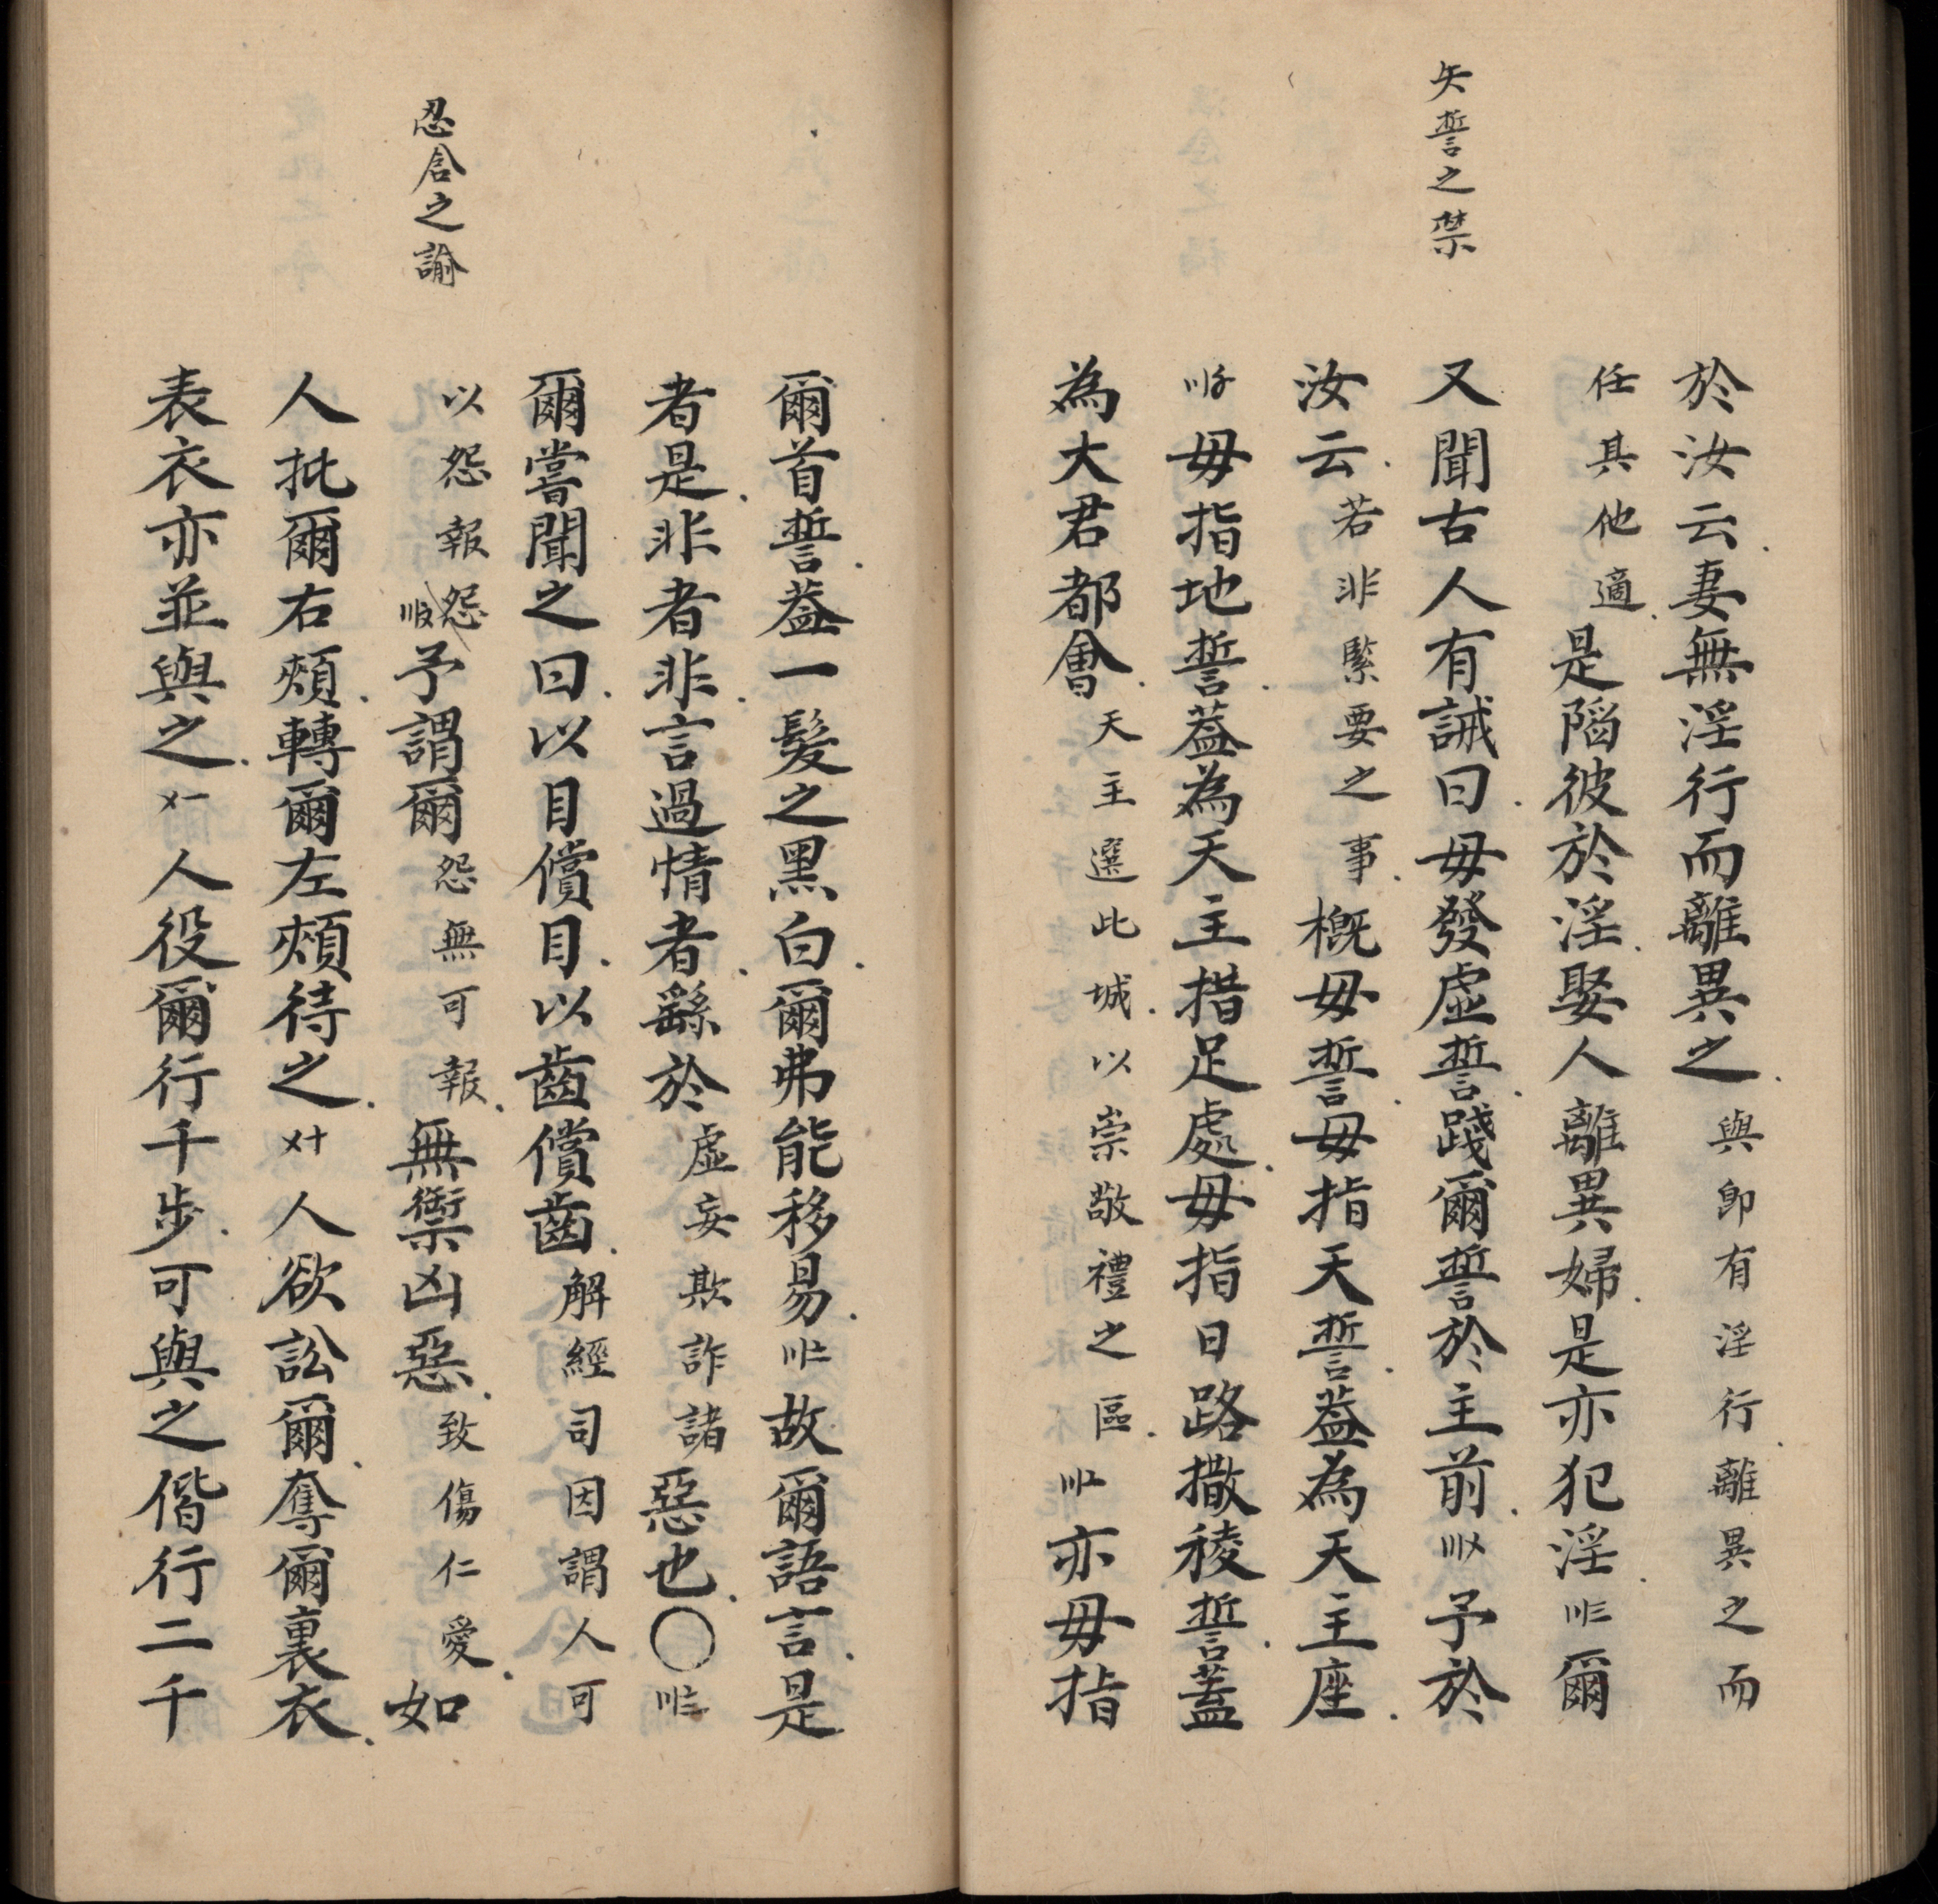 矢誓之禁
於汝云妻無淫行而離異之與卽有淫行離異之而
任其他適是陷彼於淫娶人離異婦是亦犯淫〣三爾
又聞古人有誡曰毋發虛誓踐爾誓於主前〣〤予於
汝云若非緊要之事概毋誓毋指天誓葢為天主座
〣〥毋指地誓葢為天主措足處毋指日路撒稜誓蓋
為大君都會天主選此城以崇敬禮之區〣〦亦毋指
爾首誓葢一髮之黑白爾弗能移易〣〧故爾語言是
者是非者非言過情者繇於虛妄欺詐諸惡也〇〣〨
爾嘗聞之曰以目償目以齒償齒解經司因謂人可
忍含之諭
以怨報怨〣〩予謂爾怨無可報無禦凶惡致傷仁愛如
人批爾右頰轉爾左頰待之〤十人欲訟爾奪爾裏衣
表衣亦並與之〤一人役爾行千步可與之偕行二千